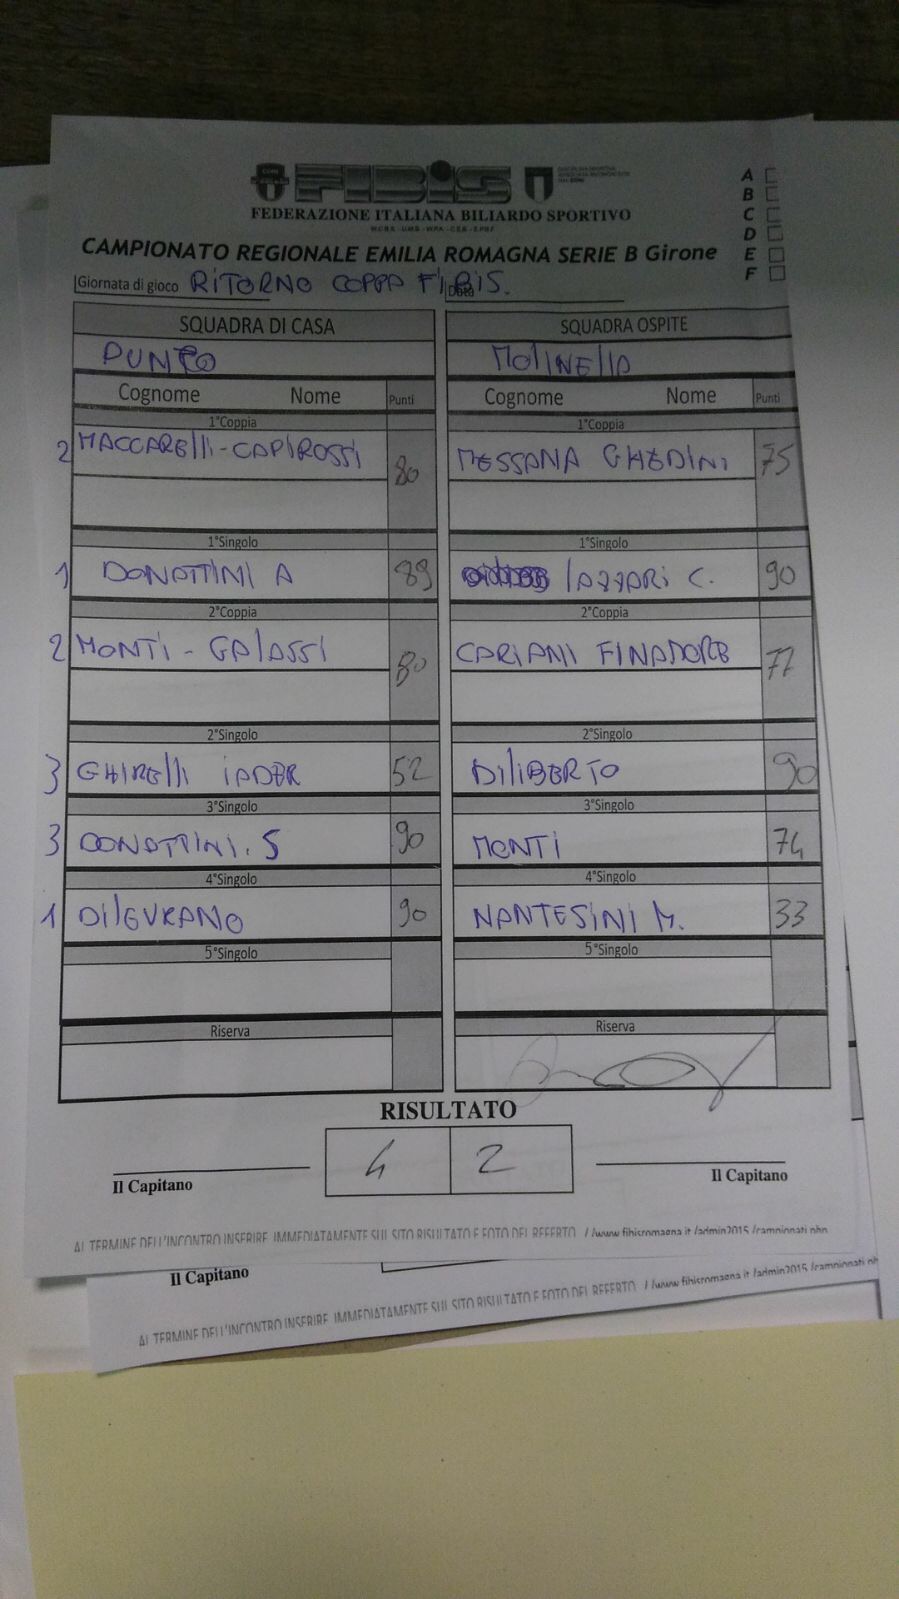 FIBIS
FEDERAZIONE ITALIANA BILIARDO SPORTIVO
A
B
C
D
E
F
CAMPIONATO REGIONALE EMILIA ROMAGNA SERIE B Girone
Giornata di gioco RITORNO COPPA FIBIS. Data
SQUADRA DI CASA SQUADRA OSPITE
PUNTO MOLINELLA
Cognome Nome Punti Cognome Nome Punti
1°Coppia 1°Coppia
2 MACCARELLI-CAPIROSSI 80 MESSANA GHEDINI 75
1°Singolo 1°Singolo
1 DONATTINI A 89 LAZZARI C. 90
2°Coppia 2°Coppia
2 MONTI - GALASSI 80 CARIANI FINADORE 77
2°Singolo 2°Singolo
3 GHIRELLI IADER 52 DILIBERTO 90
3°Singolo 3°Singolo
3 DONATTINI. S 90 MONTI 74
4°Singolo 4°Singolo
1 DILEVRANO 90 NANTESINI M. 33
5°Singolo 5°Singolo
Riserva Riserva
RISULTATO
4 2
Il Capitano Il Capitano
AL TERMINE DELL'INCONTRO INSERIRE IMMEDIATAMENTE SUL SITO RISULTATO E FOTO DEL REFERTO //www.fibisromagna.it /admin2015 /campionati.php
Il Capitano
AL TERMINE DELL'INCONTRO INSERIRE IMMEDIATAMENTE SUL SITO RISULTATO E FOTO DEL REFERTO //www.fibisromagna.it /admin2015 /campionati.ph